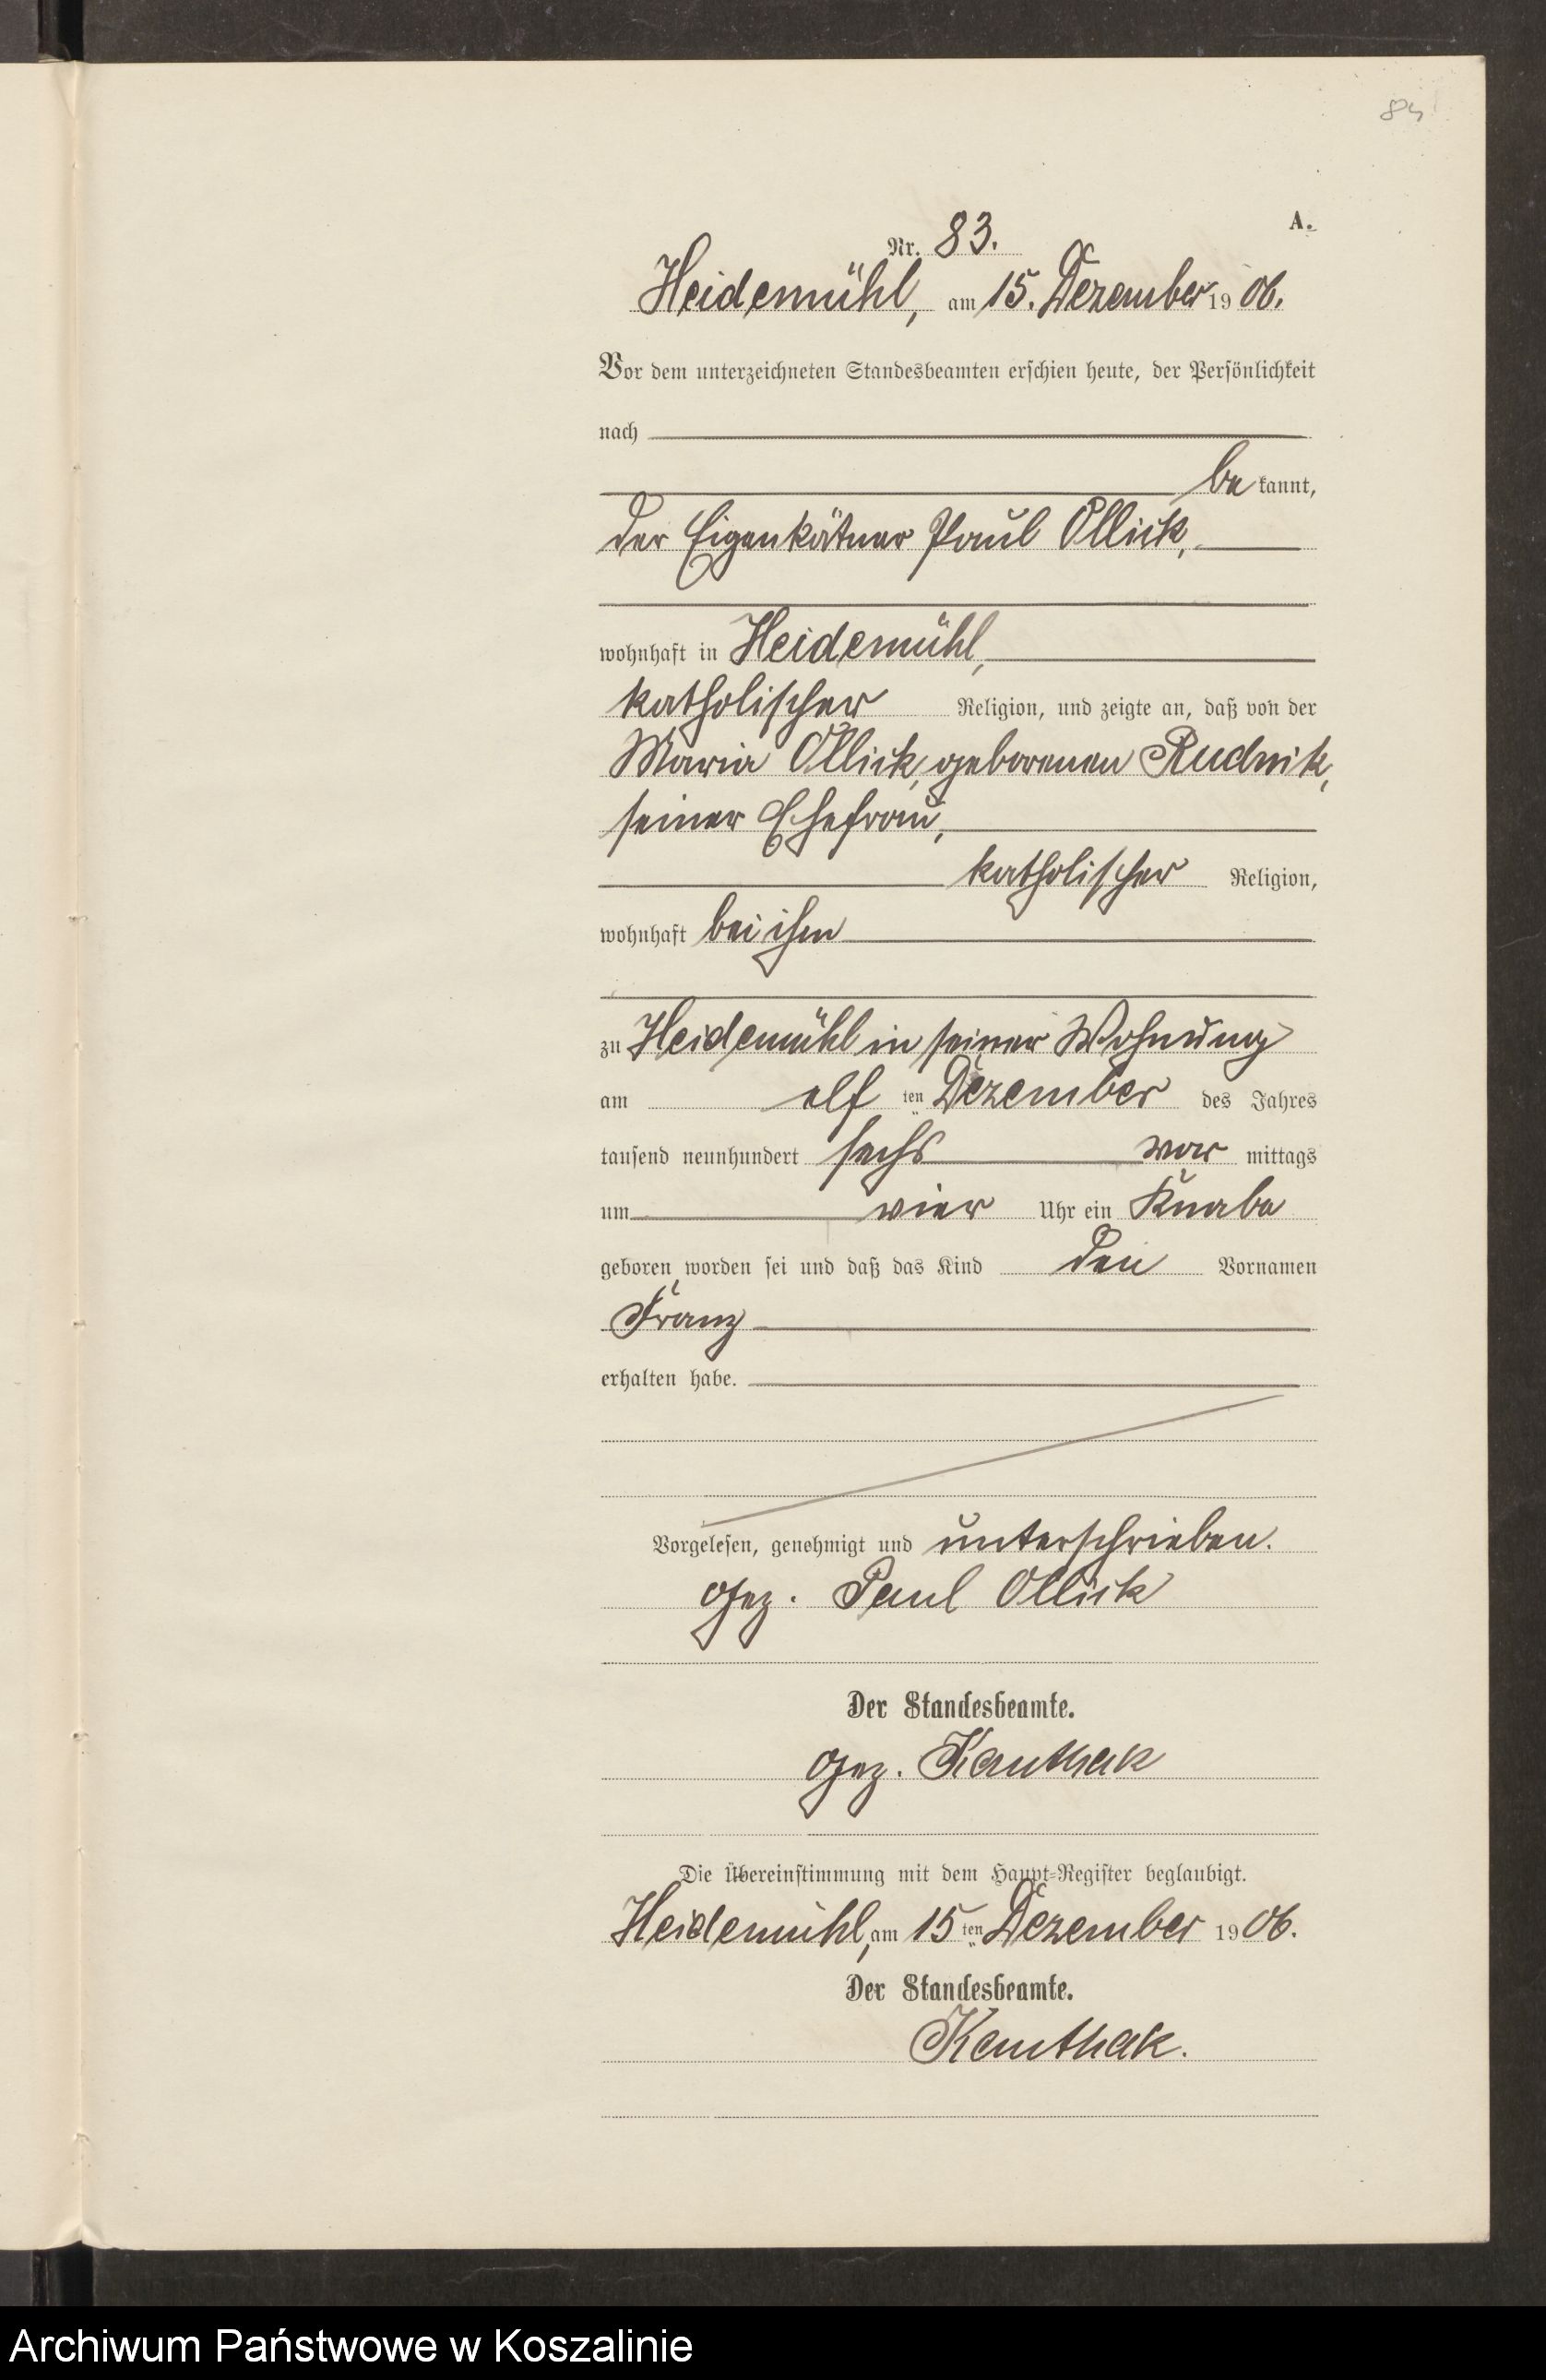 84
A.
Nr. 83.
Heidemühl, am 15. Dezember 1906.
Vor dem unterzeichneten Standesbeamten erschien heute, der Persönlichkeit
nach
be kannt,
der Eigenkätner Paul Ollick,
wohnhaft in Heidemühl,
katholischer Religion, und zeigte an, daß von der
Maria Ollick, geborenen Rudnik,
seiner Ehefrau,
katholischer Religion,
wohnhaft bei ihm
zu Heidemühl in seiner Wohnung
am elf ten Dezember des Jahres
tausend neunhundert sechs vor mittags
um vier Uhr ein Knabe
geboren worden sei und daß das Kind den Vornamen
Franz
erhalten habe.
Vorgelesen, genehmigt und unterschrieben.
gez. Paul Ollick
Der Standesbeamte.
gez. Kauthak
Die Übereinstimmung mit dem Haupt-Register beglaubigt.
Heidemühl, am 15ten Dezember 1906.
Der Standesbeamte.
Kauthak.
Archiwum Państwowe w Koszalinie